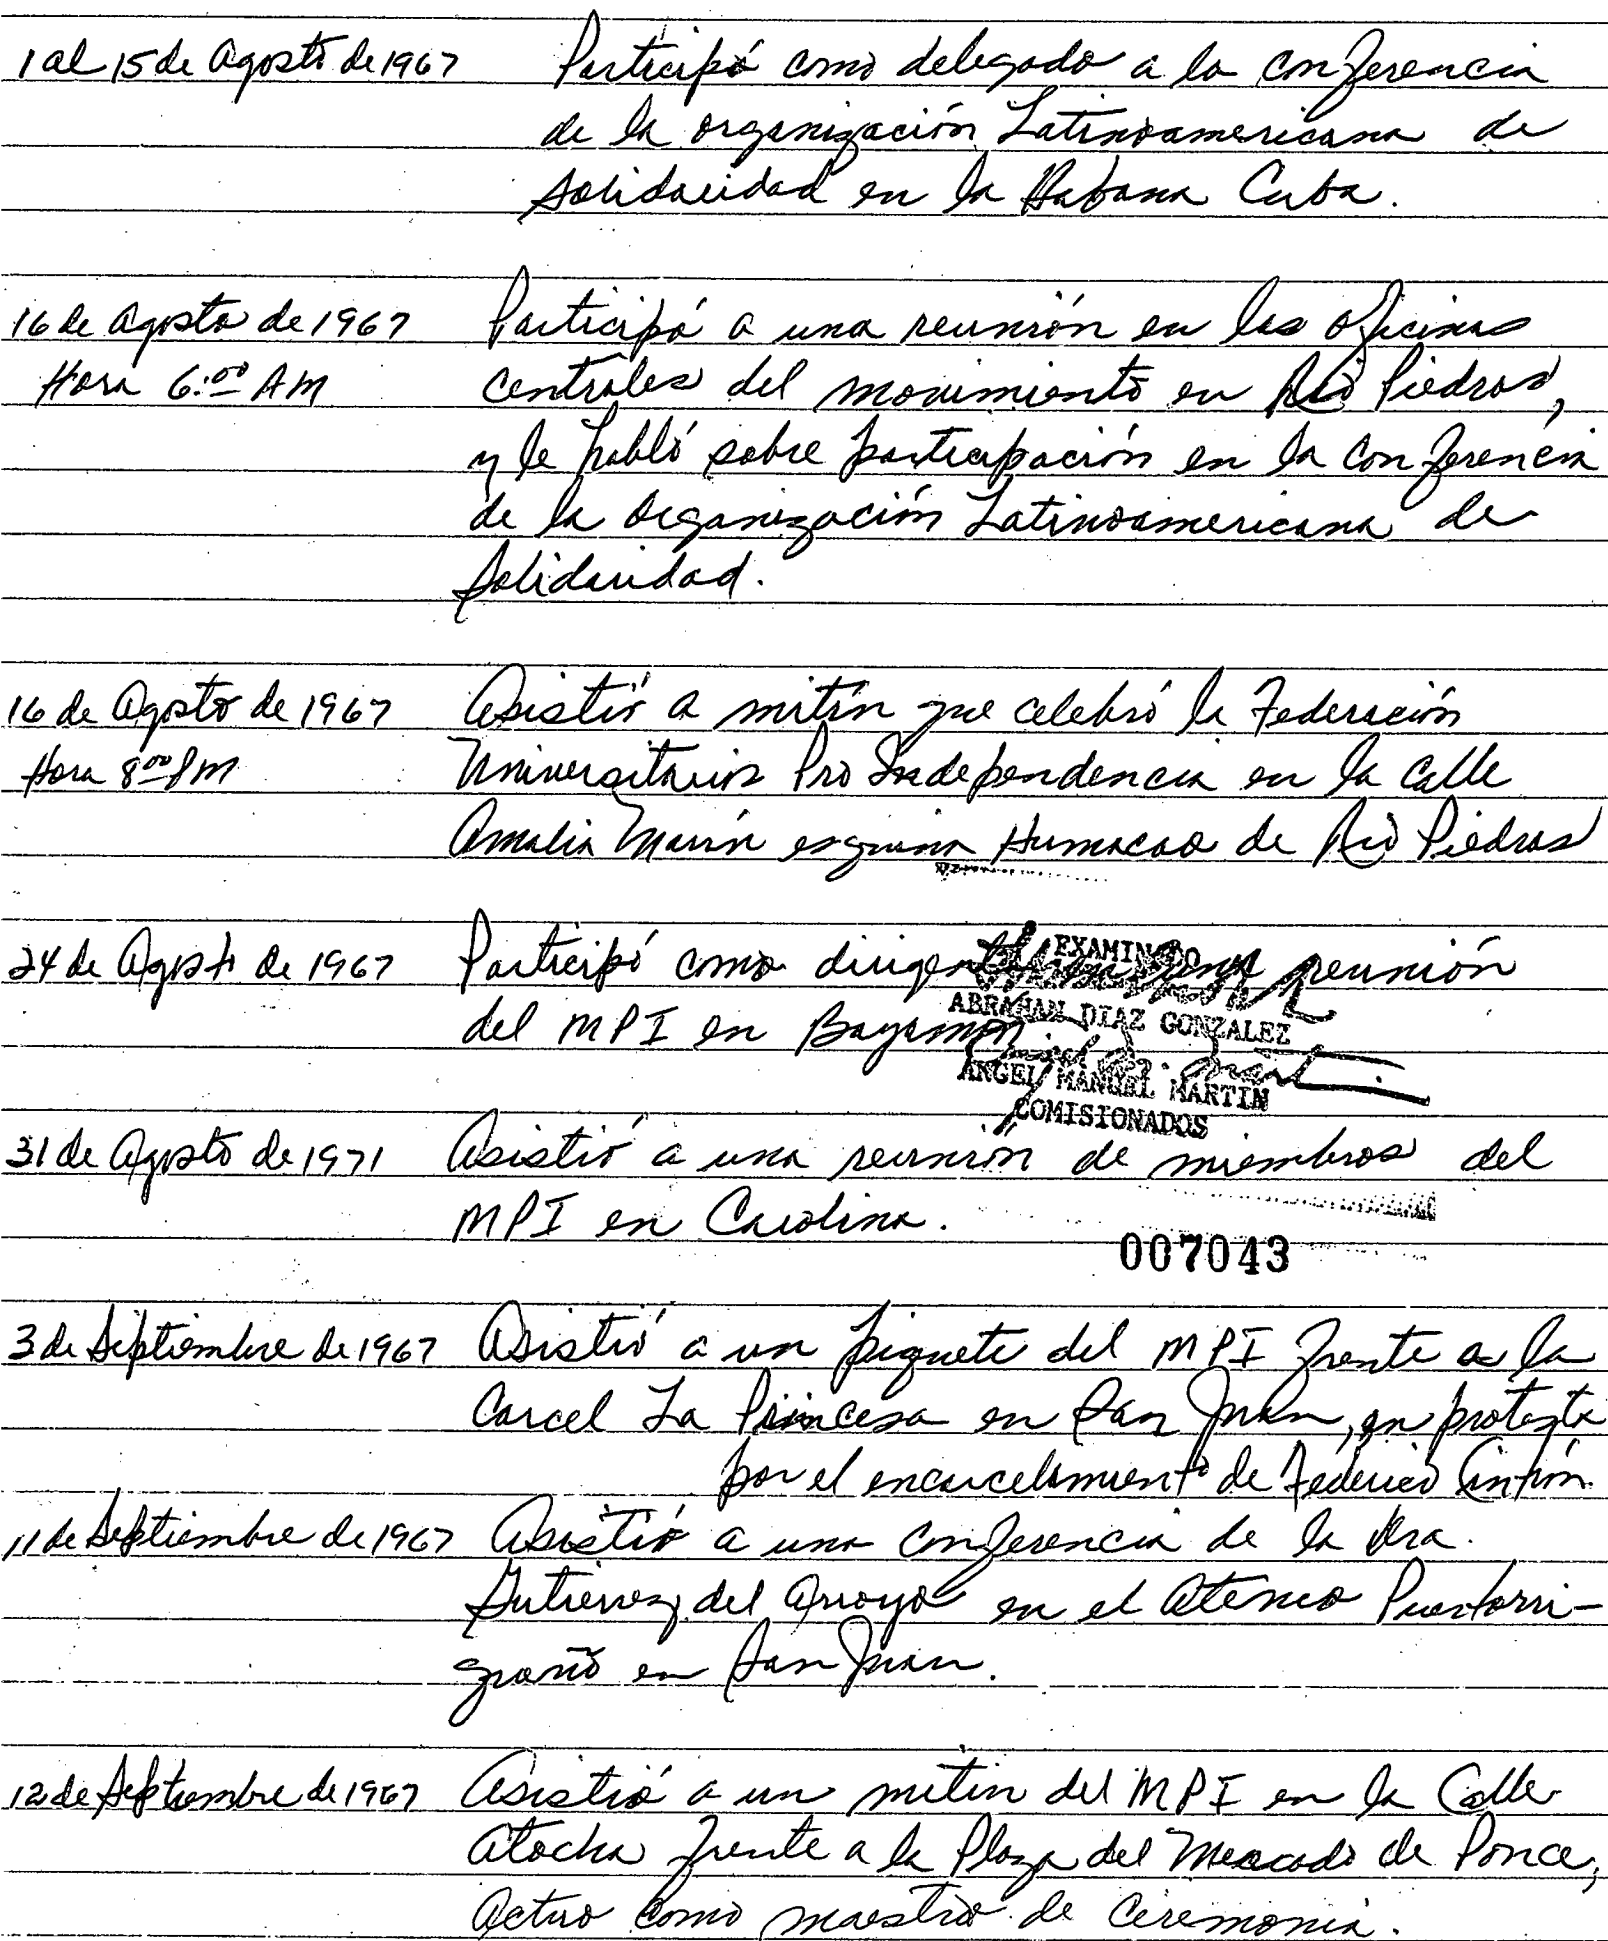 1 al 15 de Agosto de 1967 Participó como delegado a la conferencia
de la organización Latinoamericana de
Solidaridad en la Habana Cuba.
16 de Agosto de 1967 Participó a una reunión en las oficinas
Hora 6:00 AM centrales del movimiento en Rio Piedras,
y le habló sobre participación en la conferencia
de la organización Latinoamericana de
Solidaridad.
16 de Agosto de 1967 Asistió a mitín que celebró la Federación
Hora 8:00 PM Universitarios Pro Independencia en la Calle
Amalia Marín esquina Humacao de Rio Piedras
24 de Agosto de 1967 Participó como dirigente en una reunión
EXAMINADO
del MPI en Bayamón
ABRAHAN DIAZ GONZALEZ
ANGEL MANUEL MARTIN
COMISIONADOS
31 de Agosto de 1971 Asistió a una reunión de miembros del
MPI en Carolina.
007043
3 de Septiembre de 1967 Asistió a un piquete del MPI frente a la
Carcel La Princesa en San Juan, en protesta
por el encarcelamiento de Federico Cintrón
11 de Septiembre de 1967 Asistió a una conferencia de la Dra.
Gutierrez del Arroyo en el Ateneo Puertorri-
queño en San Juan.
12 de Septiembre de 1967 Asistió a un mitin del MPI en la Calle
Atocha frente a la Plaza del Mercado de Ponce,
Actuo como maestro de Ceremonia.